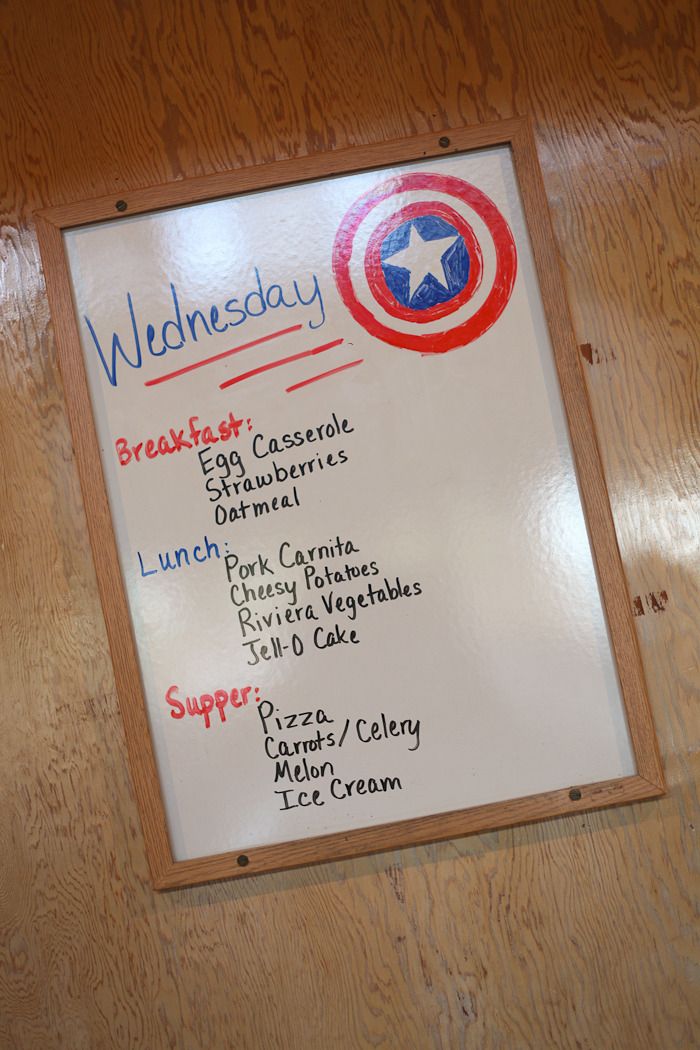 Wednesday
Breakfast:
Egg Casserole
Strawberries
Oatmeal
Lunch:
Pork Carnita
Cheesy Potatoes
Riviera Vegetables
Jell-O Cake
Supper:
Pizza
Carrots/Celery
Melon
Ice Cream